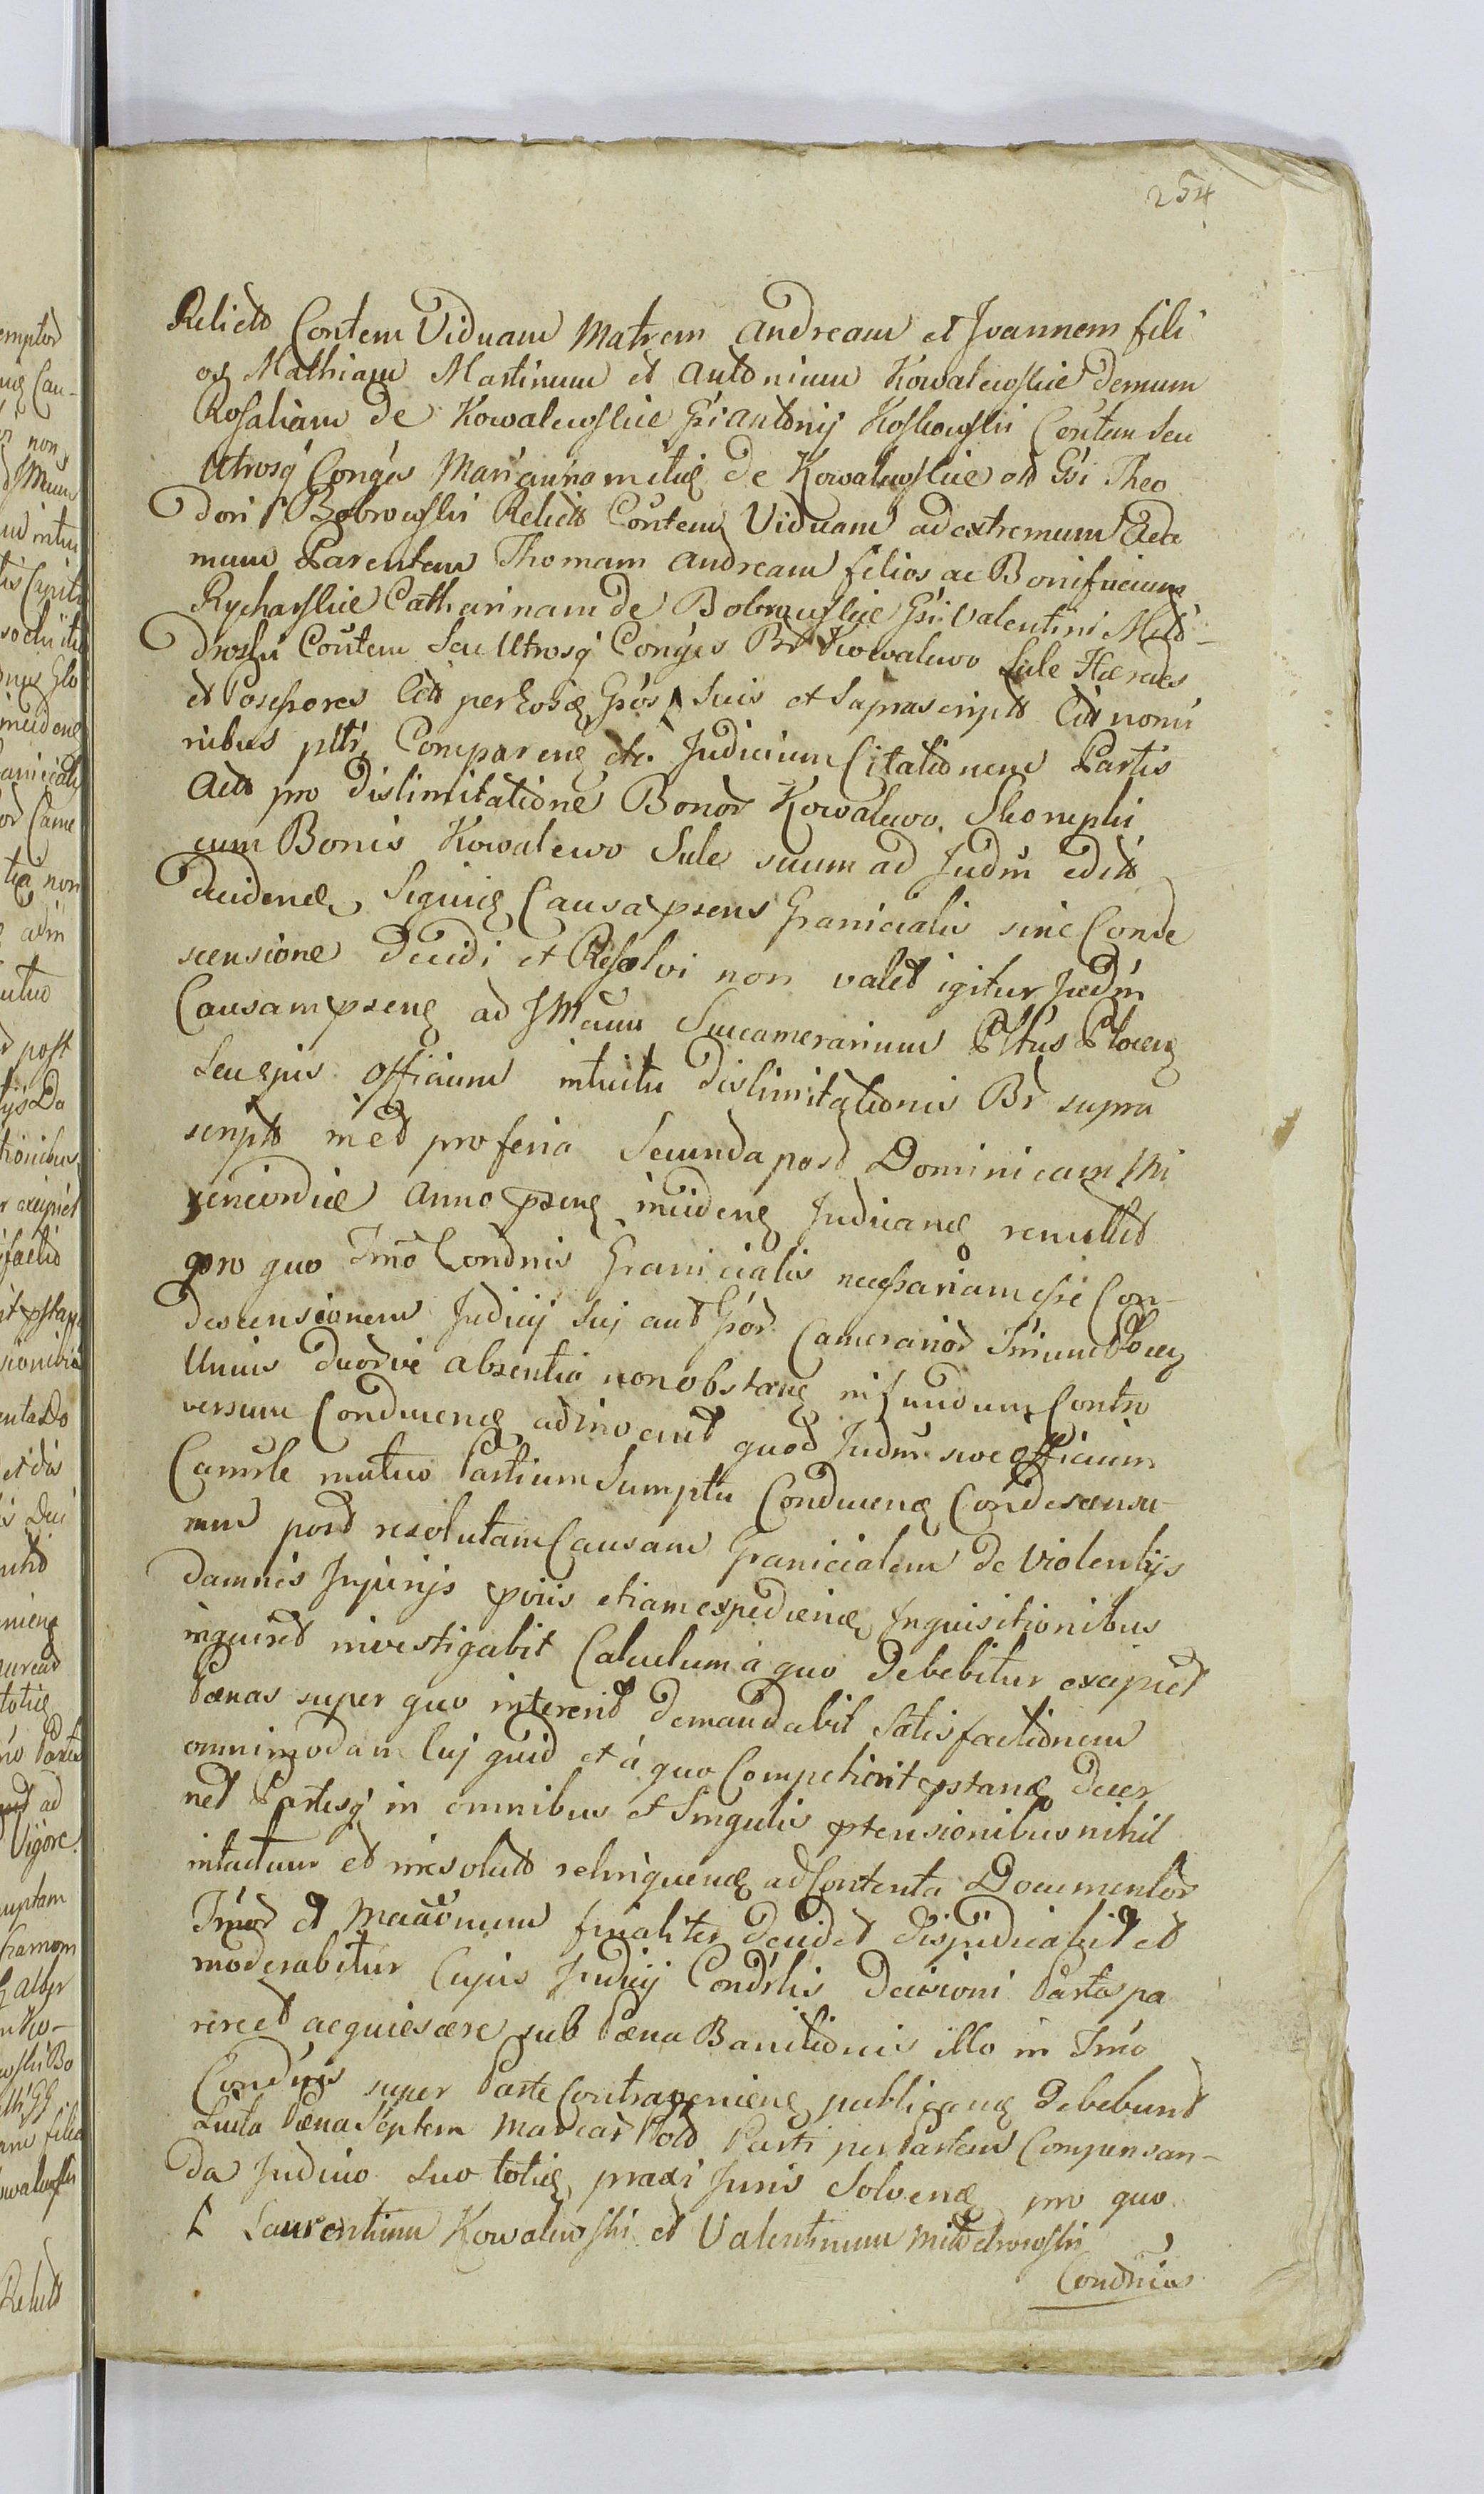 254
Relictã Contem Viduam Matrem Andream et Joannem fili
os Mathiam Martinum et Antonium Kowalewskie demum
Rosaliam de Kowalewskie Gsi Antonij Koskowski Contem seu
Utrosq Conges Mariannam itiq de Kowalewskie oĩ Gsi Theo
dori Bobrowski Relictã Contem Viduam ad extremum
mum Parentem Thomam Andream filios ac Bonifacium
Rycharskie Catharinam de Bobrowskie Gsi Valentini Milo-
drowski Contem seu Utrosq Conges Br Kowalewo Sule Hæredes
et Possessores Citt per Gsos Ⱶ suis et suprascript Citt nomi
nibus pltr Compareng etc. Judicium Citationem Partis
Act pro dislimitatione Bonor Kowalewo Skorupki
cum Bonis Kowalewo Sule suum ad Judm edit
decideng Siquid Causa psens Granicialis sine Conde
scensione decidi et Resolvi non valet igitur Judm
Causam pseng ad JMcum Succamerarium Pltus Ploceñ
seu ejus officium intuitu dislimitationis Br supra
script in et pro feria Secunda post Dominicam Mi
sericordiæ anno pseng incideng Judicang remittit
pro quo Tmo Condnis Granicialis necessariam esse Con-
descensionem Judicij sui aut Gsor Camerarior Trium Ploceñ
Unius duorve absentia non obstang in fundum Contro
versum Conduceng adinvenit quod Judm sive officium
Camrle mutuo Partium Sumptu Conduceng Condescensu-
rum post resolutam Causam Granicialem de Violentijs
damnis Injurijs prius etiam expedieng Inquisitionibus
inquiret investigabit Calculum à quo debebitur excipiet
Pænas super quo intererit demandabit Satisfactionem
omnimodam Cuj quid et à quo Competierit pstang decer
net Partesq in omnibus et Singulis ptensionibus nihil
intactum et irresolut relinqueng ad Contenta Documentor
Tmor et finaliter decidet disjudicabit et
moderabitur Cujus Judicij Condrlis decisioni Partes pa
rere et acquiescere sub Pæna Banitionis illo in Tmo
Condnis super Parte Contravenieng publicang debebunt
Luita Pæna Septem Marcar Pold Parti per Partem Compensan-
da Judicio suo toties praxi Juris Solveng pro quo
Ⱶ Laurentium Kowalewski et Valentinum Milodrowski
Condnis